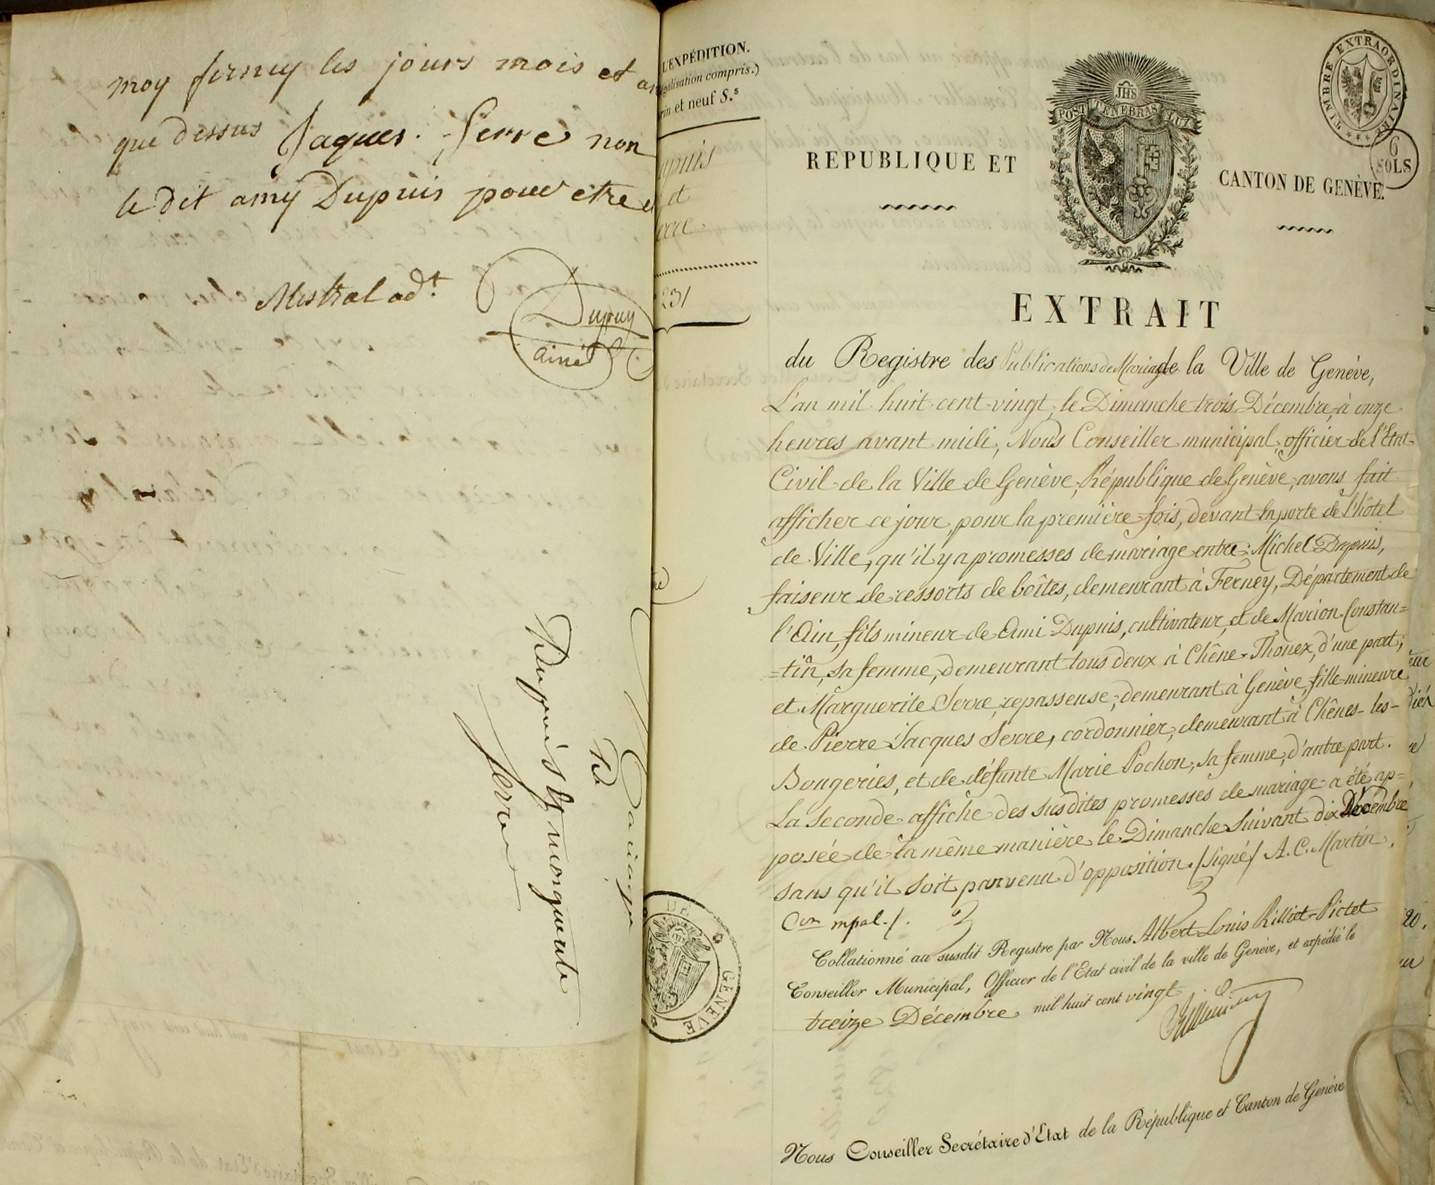 moy ferney les jours mois et an
que dessus Jaques Serre non
le dit amy Dupuis pour etre
Mistral adt.
Dupuy
ainé
Mariage
De
Dupuis & marguerite
Serre
L'EXPÉDITION.
(légalisation compris.)
rin et neuf S.s
upuis
et
erre
231
TIMBRE EXTRAORDINAIRE
6
SOLS
JHS
POST TENEBRAS LUX
REPUBLIQUE ET
CANTON DE GENÈVE.
EXTRAIT
du Registre des Publications de Mariage de la Ville de Genève,
L'an mil huit cent vingt, le Dimanche trois Décembre, à onze
heures avant midi, Nous Conseiller municipal, officier de l'Etat-
Civil de la Ville de Genève, République de Genève, avons fait
afficher ce jour, pour la première fois, devant la porte de l'hôtel
de Ville, qu'il y a promesses de mariage entre: Michel Dupuis,
faiseur de ressorts de boîtes, demeurant à Ferney, Département de
l'Ain, fils mineur de Ami Dupuis, cultivateur, et de Marion Constan=
=tin, sa femme, demeurant tous deux à Chêne-Thonex, d'une part;
et Marguerite Serre, repasseuse, demeurant à Genève, fille mineure
de Pierre Jacques Serre, cordonnier, demeurant à Chênes-les-
Bougeries, et de défunte Marie Pochon, sa femme, d'autre part.
La seconde affiche des susdites promesses de mariage a été ap=
posée de la même manière le Dimanche suivant dix Décembre
sans qu'il soit parvenu d'opposition. (signé) A. C. Martin,
Cer mpal. /.
Collationné au susdit Registre par Nous Albert Louis Rilliet-Pictet
Conseiller Municipal, Officier de l'Etat civil de la ville de Genève, et expédié le
treize Décembre mil huit cent vingt
GENÈVE
Nous Conseiller Secrétaire d'Etat de la République et Canton de Genève